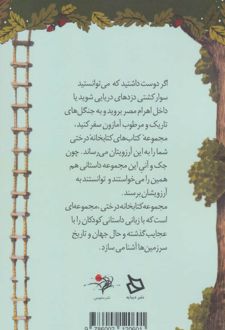 اگر دوست داشتید که می‌توانستید
سوار کشتی دزدهای دریایی شوید یا
داخل اهرام مصر بروید و به جنگل‌های
تاریک و مرطوب آمازون سفر کنید،
مجموعه کتاب‌های کتابخانه درختی
شما را به این آرزویتان می‌رساند. چون
جک و آنی این مجموعه داستانی هم
همین را می‌خواستند و توانستند به
آرزویشان برسند.
مجموعه کتابخانه درختی، مجموعه‌ای
است که با زبانی داستانی کودکان را با
عجایب گذشته و حال جهان و تاریخ
سرزمین‌ها آشنا می‌سازد.